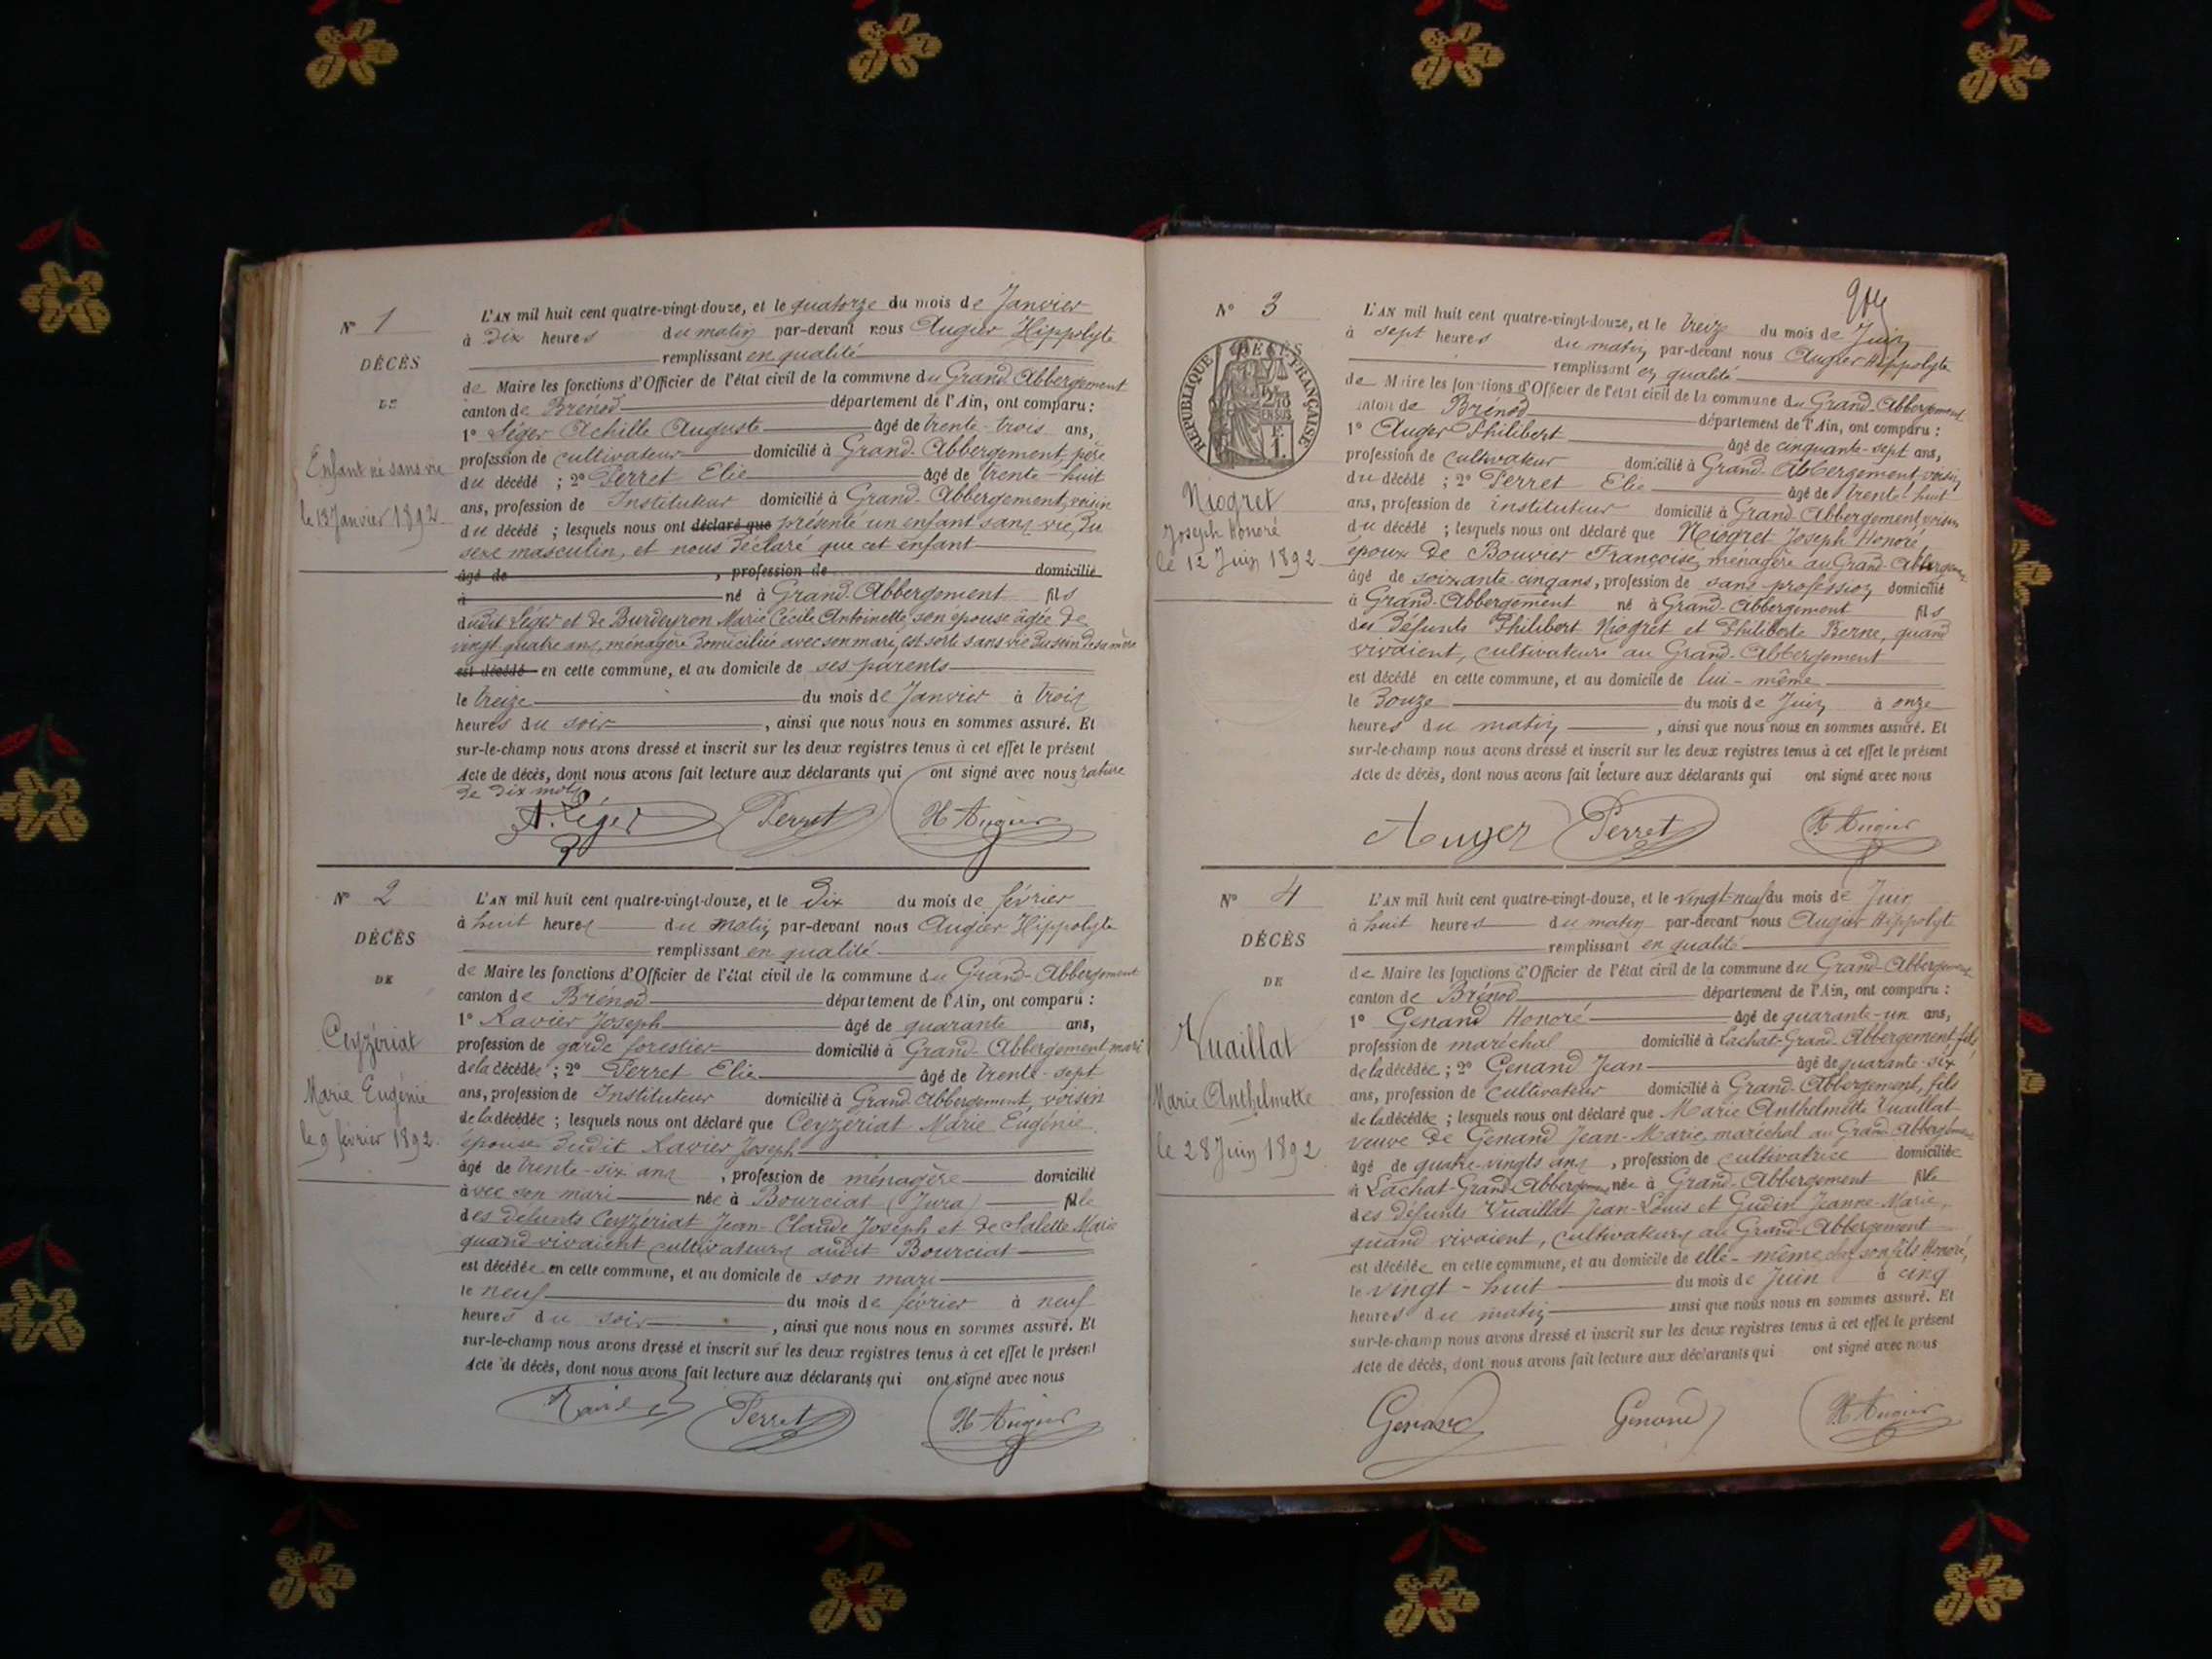 N° 1
DÉCÈS
DE
Enfant né sans vie
le 13 Janvier 1892
L'AN mil huit cent quatre-vingt-douze, et le quatorze du mois de Janvier
à dix heures du matin par-devant nous Augier Hippolyte
remplissant en qualité
de Maire les fonctions d'Officier de l'état civil de la commune du Grand Abbergement
canton de Brénod département de l'Ain, ont comparu :
1° Léger Achille Auguste âgé de trente-trois ans,
profession de cultivateur domicilié à Grand-Abbergement, père
du décédé ; 2° Perret Elie âgé de trente-huit
ans, profession de Instituteur domicilié à Grand-Abbergement, voisin
du décédé ; lesquels nous ont déclaré que présenté un enfant sans vie, du
sexe masculin, et nous déclaré que cet enfant
âgé de , profession de domicilié
à né à Grand-Abbergement fils
dudit Léger et de Burdeyron Marie Cécile Antoinette son épouse âgée de
vingt quatre ans, ménagère domiciliée avec son mari, est sorti sans vie du sein de sa mère
est décédé en cette commune, et au domicile de ses parents
le treize du mois de Janvier à trois
heures du soir , ainsi que nous nous en sommes assuré. Et
sur-le-champ nous avons dressé et inscrit sur les deux registres tenus à cet effet le présent
Acte de décès, dont nous avons fait lecture aux déclarants qui ont signé avec nous rature
de dix mots
A. Léger Perret H Augier
N° 2
DÉCÈS
DE
Ceyzériat
Marie Eugénie
le 9 février 1892.
L'AN mil huit cent quatre-vingt-douze, et le dix du mois de février
à huit heures du matin par-devant nous Augier Hippolyte
remplissant en qualité
de Maire les fonctions d'Officier de l'état civil de la commune du Grand-Abbergement
canton de Brénod département de l'Ain, ont comparu :
1° Ravier Joseph âgé de quarante ans,
profession de garde forestier domicilié à Grand-Abbergement, mari
de la décédée ; 2° Perret Elie âgé de trente-sept
ans, profession de Instituteur domicilié à Grand Abbergement, voisin
de la décédée ; lesquels nous ont déclaré que Ceyzériat Marie Eugénie
épouse dudit Ravier Joseph
âgé de trente-six ans , profession de ménagère domicilié
avec son mari née à Bourciat (Jura) fille
des défunts Ceyzériat Jean-Claude Joseph et de Salette Marie
quand vivaient cultivateurs audit Bourciat
est décédée en cette commune, et au domicile de son mari
le neuf du mois de février à neuf
heures du soir , ainsi que nous nous en sommes assuré. Et
sur-le-champ nous avons dressé et inscrit sur les deux registres tenus à cet effet le présent
Acte de décès, dont nous avons fait lecture aux déclarants qui ont signé avec nous
Ravier Perret H Augier
N° 3
DÉCÈS
RÉPUBLIQUE FRANÇAISE
Niogret
Joseph Honoré
le 12 Juin 1892
L'AN mil huit cent quatre-vingt-douze, et le treize du mois de Juin
à sept heures du matin par-devant nous Augier Hippolyte
remplissant en qualité
de Maire les fonctions d'Officier de l'état civil de la commune du Grand-Abbergement
canton de Brénod département de l'Ain, ont comparu :
1° Auger Philibert âgé de cinquante-sept ans,
profession de cultivateur domicilié à Grand-Abbergement, voisin
du décédé ; 2° Perret Elie âgé de trente-huit
ans, profession de instituteur domicilié à Grand-Abbergement, voisin
du décédé ; lesquels nous ont déclaré que Niogret Joseph Honoré
époux de Bouvier Françoise, ménagère au Grand-Abbergement
âgé de soixante cinq ans, profession de sans profession domicilié
à Grand-Abbergement né à Grand-Abbergement fils
des défunts Philibert Niogret et Philiberte Berne, quand
vivaient, cultivateurs au Grand-Abbergement
est décédé en cette commune, et au domicile de lui-même
le douze du mois de Juin à onze
heures du matin , ainsi que nous nous en sommes assuré. Et
sur-le-champ nous avons dressé et inscrit sur les deux registres tenus à cet effet le présent
Acte de décès, dont nous avons fait lecture aux déclarants qui ont signé avec nous
Auger Perret H Augier
N° 4
DÉCÈS
DE
Vuaillat
Marie Anthelmette
le 28 Juin 1892
L'AN mil huit cent quatre-vingt-douze, et le vingt-neuf du mois de Juin
à huit heures du matin par-devant nous Augier Hippolyte
remplissant en qualité
de Maire les fonctions d'Officier de l'état civil de la commune du Grand-Abbergement
canton de Brénod département de l'Ain, ont comparu :
1° Genand Honoré âgé de quarante-un ans,
profession de maréchal domicilié à Lachat-Grand-Abbergement, fils
de la décédée ; 2° Genand Jean âgé de quarante-six
ans, profession de cultivateur domicilié à Grand-Abbergement, fils
de la décédée ; lesquels nous ont déclaré que Marie Anthelmette Vuaillat
veuve de Genand Jean-Marie, maréchal au Grand-Abbergement
âgé de quatre-vingts ans , profession de cultivatrice domiciliée
à Lachat-Grand-Abbergement née à Grand-Abbergement fille
des défunts Vuaillat Jean-Louis et Gudin Jeanne-Marie,
quand vivaient, cultivateurs au Grand-Abbergement
est décédée en cette commune, et au domicile de elle-même chez son fils Honoré,
le vingt-huit du mois de Juin à cinq
heures du matin ainsi que nous nous en sommes assuré. Et
sur-le-champ nous avons dressé et inscrit sur les deux registres tenus à cet effet le présent
Acte de décès, dont nous avons fait lecture aux déclarants qui ont signé avec nous
Genand Genand H Augier